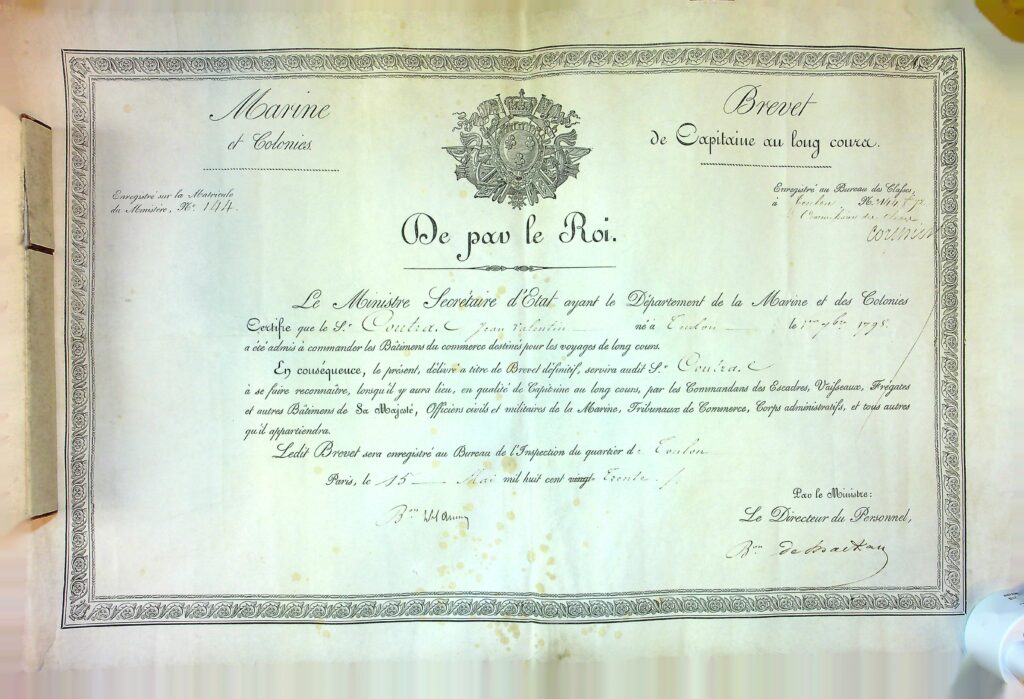 Marine
et Colonies.
Enregistré sur la Matricule
du Ministère, N.º 144.
Brevet
de Capitaine au long cours.
Enregistré au Bureau des Classes,
à Toulon N.º 144 fº 72
De par le Roi.
Le Ministre Secrétaire d'Etat ayant le Département de la Marine et des Colonies
Certifie que le S.r Coutral Jean Valentin né à Toulon le 1er 7bre 1798
a été admis à commander les Bâtimens du commerce destinés pour les voyages de long cours.
En conséquence, le présent, délivré à titre de Brevet définitif, servira audit S.r Coutral
à se faire reconnaître, lorsqu'il y aura lieu, en qualité de Capitaine au long cours, par les Commandans des Escadres, Vaisseaux, Frégates
et autres Bâtimens de Sa Majesté, Officiers civils et militaires de la Marine, Tribunaux de Commerce, Corps administratifs, et tous autres
qu'il appartiendra.
Ledit Brevet sera enregistré au Bureau de l'Inspection du quartier de Toulon
Paris, le 15 Mai mil huit cent vingt Trente
Par le Ministre:
Le Directeur du Personnel,
Bon d'Haussez
Bon de Mackau